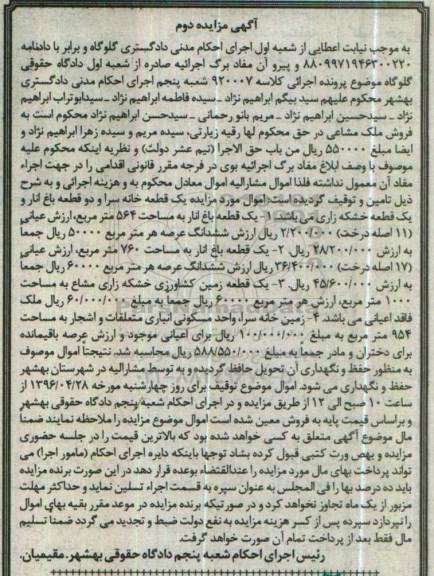 آگهی مزایده دوم
به موجب نیابت اعطایی از شعبه اول اجرای احکام مدنی دادگستری گلوگاه و برابر با دادنامه
۸۸۰۹۹۷۱۹۴۶۳۰۰۲۲۰ و پیرو آن مفاد برگ اجرائیه صادره از شعبه اول دادگاه حقوقی
گلوگاه موضوع پرونده اجرائی کلاسه ۹۲۰۰۰۷ شعبه پنجم اجرای احکام مدنی دادگستری
بهشهر محکوم علیهم سید بیگم ابراهیم نژاد _ سیده فاطمه ابراهیم نژاد _ سیدابوتراب ابراهیم
نژاد _ سیدحسین ابراهیم نژاد _ مریم بانو رحمانی _ سیدحسن ابراهیم نژاد محکوم است به
فروش ملک مشاعی در حق محکوم لها رقیه زیارتی، سیده مریم و سیده زهرا ابراهیم نژاد و
ایضا مبلغ ۵۵۰۰۰۰ ریال من باب حق الاجرا (نیم عشر دولت) و نظریه اینکه محکوم علیه
موصوف با وصف ابلاغ مفاد برگ اجرائیه بوی در فرجه مقرر قانونی اقدامی را در جهت اجراء
مفاد آن معمول نداشته فلذا اموال مشارالیه اموال معادل محکوم به و هزینه اجرائی و به شرح
ذیل تامین و توقیف گردیده است: اموال مورد مزایده یک قطعه خانه سرا و دو قطعه باغ انار و
یک قطعه خشکه زاری می باشد. ۱- یک قطعه باغ انار به مساحت ۵۶۴ متر مربع، ارزش عیانی
(۱۱ اصله درخت) ۲/۲۰۰/۰۰۰ ریال ارزش ششدانگ عرصه هر متر مربع ۵۰۰۰۰ ریال جمعا
به ارزش ۲۸/۲۰۰/۰۰۰ ریال. ۲- یک قطعه باغ انار به مساحت ۷۶۰ متر مربع، ارزش عیانی
(۱۷ اصله درخت) ۳۶/۴۰۰/۰۰۰ ریال ارزش ششدانگ عرصه هر متر مربع ۶۰۰۰۰ ریال جمعا
به ارزش ۴۵/۶۰۰/۰۰۰ ریال. ۳- یک قطعه زمین کشاورزی خشکه زاری مشاع به مساحت
۱۰۰۰ متر مربع، ارزش هر متر مربع ۶۰۰۰۰ ریال جمعا به مبلغ ۶۰/۰۰۰/۰۰۰ ریال ملک
فاقد اعیانی می باشد. ۴- زمین خانه سرا، واحد مسکونی انباری متعلقات و اشجار به مساحت
۹۵۴ متر مربع به مبلغ ۱۰۰/۰۰۰/۰۰۰ ریال برای اعیانی موجود و ارزش عرصه باقیمانده
برای دختران و مادر جمعا به مبلغ ۵۸۸/۵۵۰/۰۰۰ ریال محاسبه شد. نتیجتا اموال موصوف
به منظور حفظ و نگهداری آن تحویل حافظ گردیده و به توسط مشارالیه در شهرستان بهشهر
حفظ و نگهداری می شود. اموال موضوع توقیف برای روز چهارشنبه مورخه ۱۳۹۶/۰۴/۲۸ از
ساعت ۱۰ صبح الی ۱۲ از طریق مزایده و در اجرای احکام شعبه پنجم دادگاه حقوقی بهشهر
و براساس قیمت پایه به فروش معین شده است اموال موضوع مزایده را ملاحظه نمایند ضمنا
مال موضوع آگهی متعلق به کسی خواهد شده بود که بالاترین قیمت را در جلسه حضوری
مزایده و بهص ورت کتبی قبول کرده بشاد توجها باینکه دایره اجرای احکام (مامور اجرا) می
تواند پرداخت بهای مال مورد مزایده را عندالقتضاء بوعده قرار دهد در این صورت برنده مزایده
باید ده درصد بها را فی المجلس به عنوان سپره به قسمت اجراء تسلین نماید و حداکثر مهلت
مزبور از یک ماه تجاوز نخواهد کرد و در صورتیکه برنده مزایده در موعد مقرر بقیه بهای اموال
را نپردازد سپرده پس از کسر هزینه مزایده به نفع دولت ضبط و تجدید می گردد ضمنا تسلیم
مال فقط بعد از پرداخت تمام آن صورت خواهد گرفت.
رئیس اجرای احکام شعبه پنجم دادگاه حقوقی بهشهر. مقیمیان.